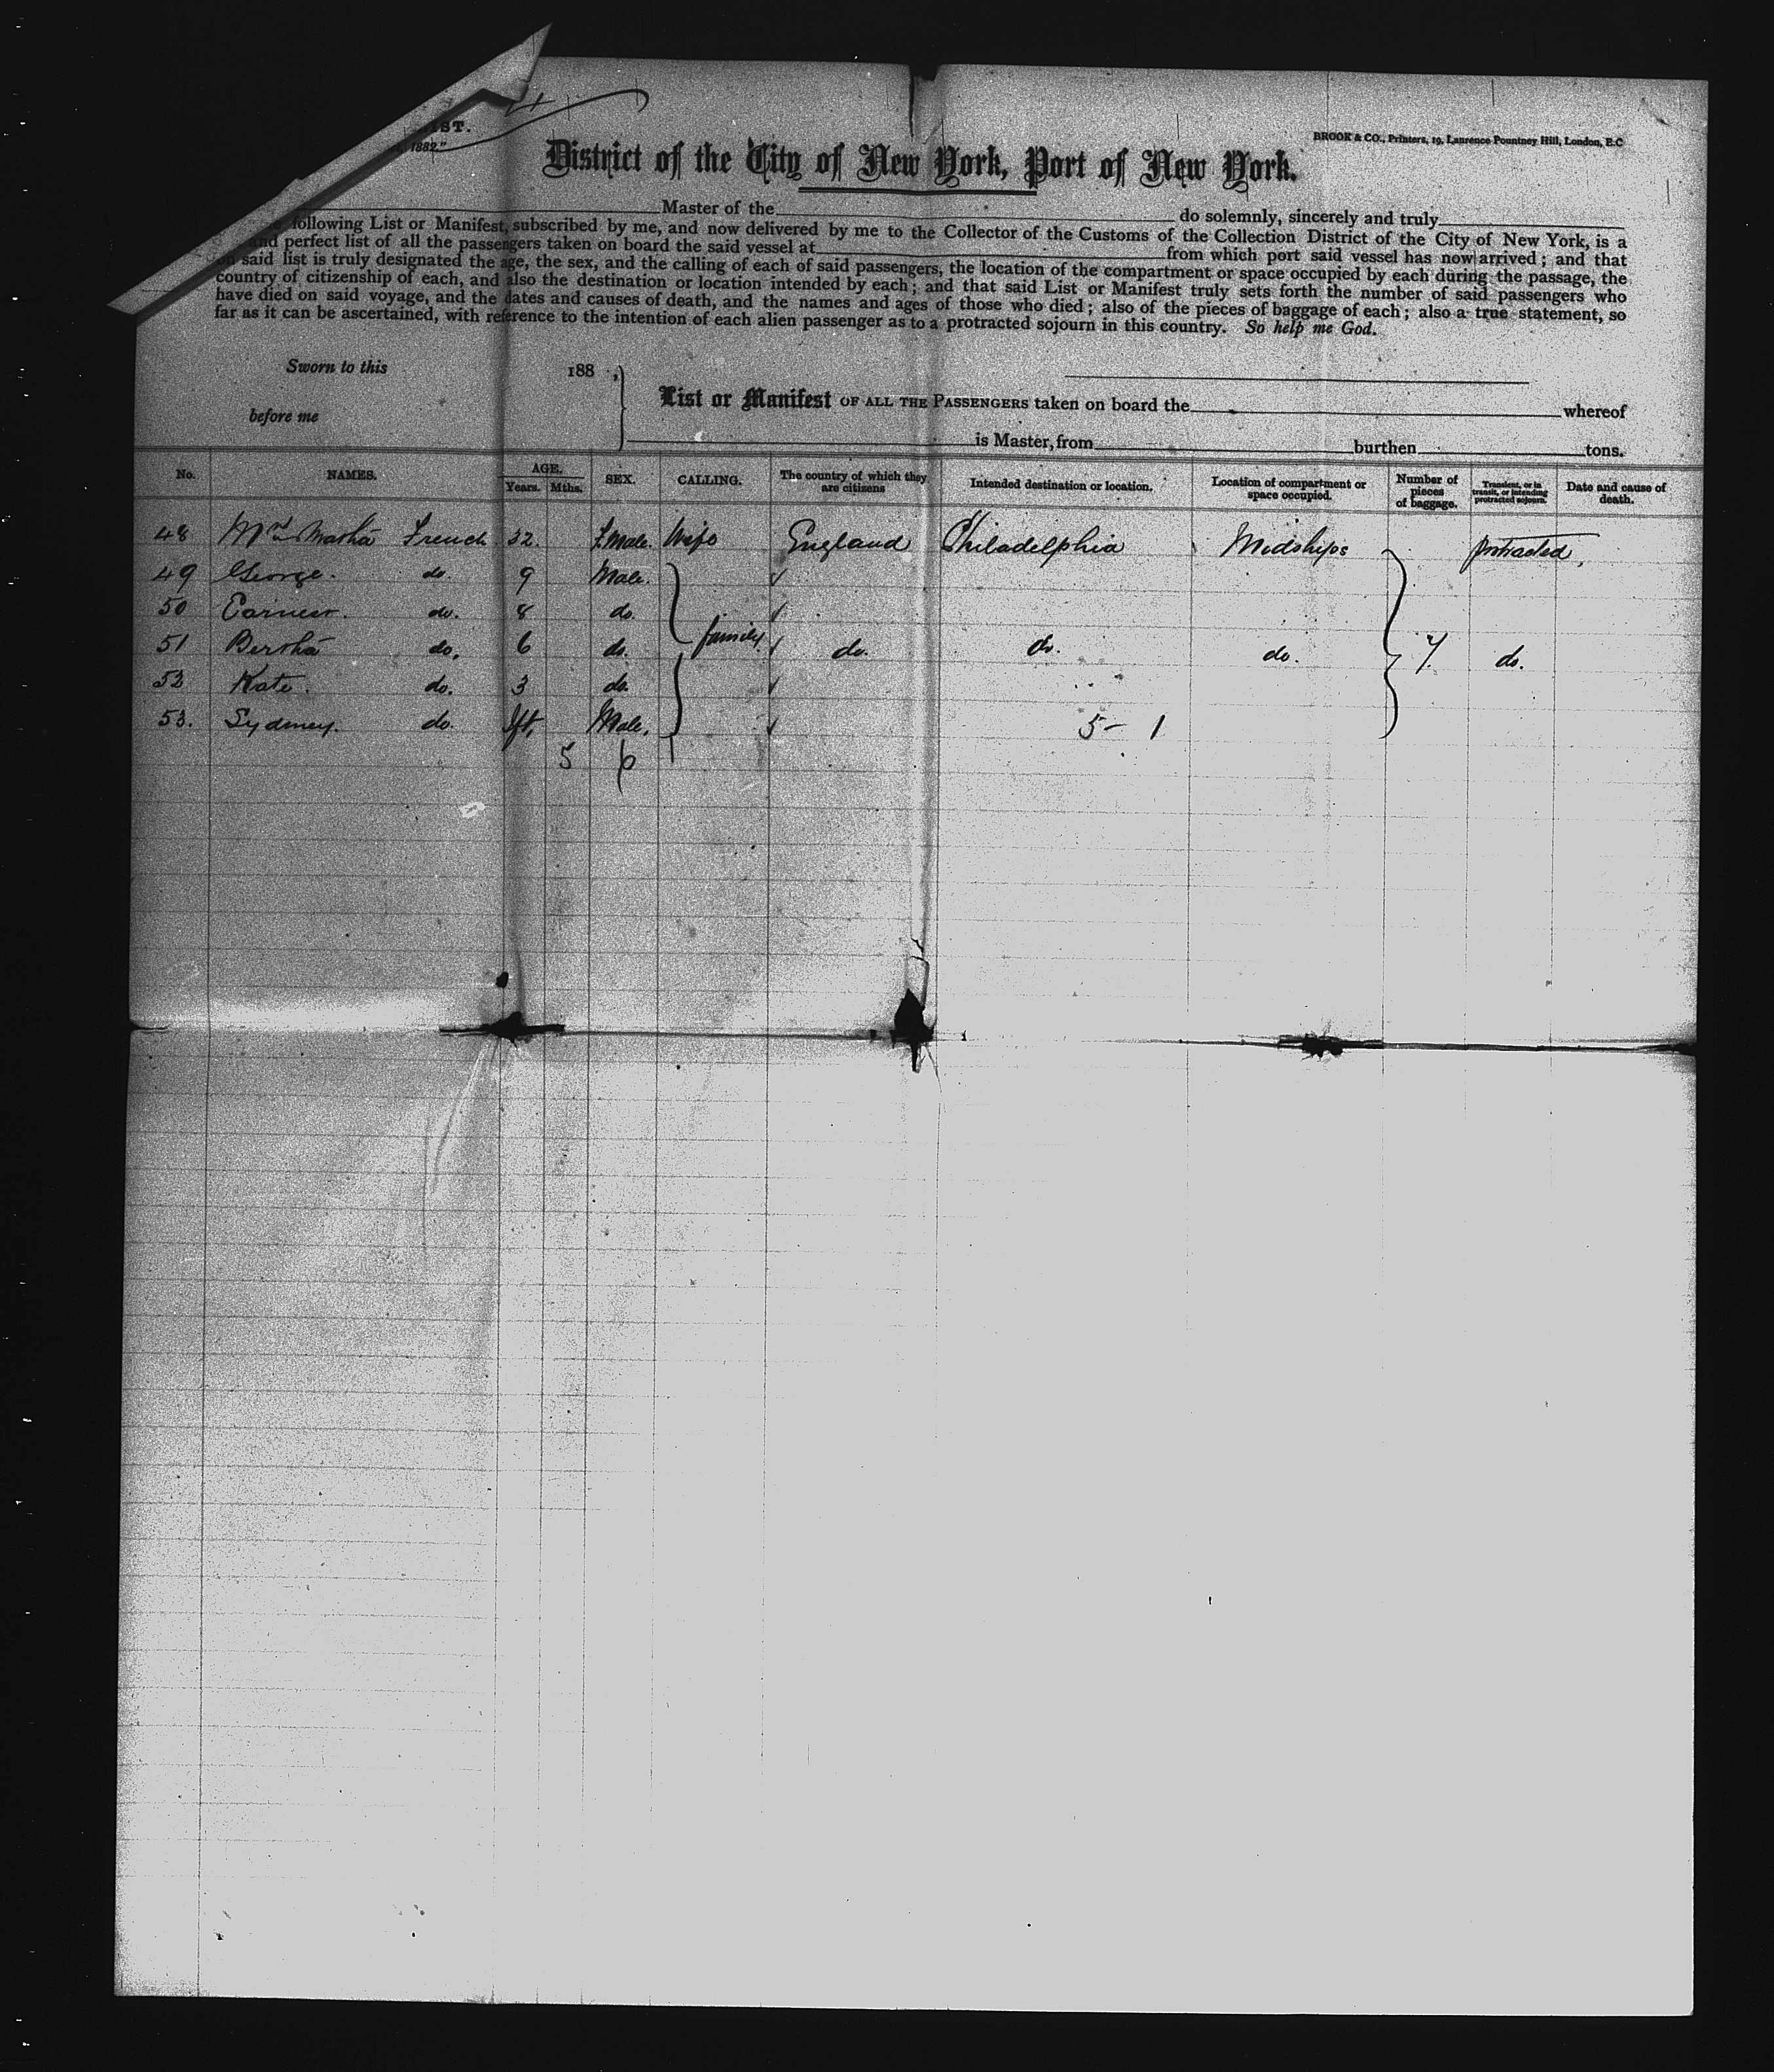 ST.
1882."
BROOK & CO., Printers, 19, Laurence Pountney Hill, London, E.C
District of the City of New York, Port of New York.
Master of the do solemnly, sincerely and truly
following List or Manifest, subscribed by me, and now delivered by me to the Collector of the Customs of the Collection District of the City of New York, is a
and perfect list of all the passengers taken on board the said vessel at from which port said vessel has now arrived; and that
on said list is truly designated the age, the sex, and the calling of each of said passengers, the location of the compartment or space occupied by each during the passage, the
country of citizenship of each, and also the destination or location intended by each; and that said List or Manifest truly sets forth the number of said passengers who
have died on said voyage, and the dates and causes of death, and the names and ages of those who died; also of the pieces of baggage of each; also a true statement, so
far as it can be ascertained, with reference to the intention of each alien passenger as to a protracted sojourn in this country. So help me God.
Sworn to this 188 ,
before me
List or Manifest OF ALL THE PASSENGERS taken on board the whereof
is Master, from burthen tons.
No. NAMES. AGE. Years. Mths. SEX. CALLING. The country of which they are citizens Intended destination or location. Location of compartment or space occupied. Number of pieces of baggage. Transient, or in transit, or intending protracted sojourn. Date and cause of death.
48 Mrs Martha French 32. F.Male. Wife England Philadelphia Midships protracted,
49 George. do. 9 Male.
50 Earnest. do. 8 do.
51 Bertha do. 6 do. family do. do. do. 7. do.
52 Kate. do. 3 do.
53. Sydney. do. Ift. Male. 5 - 1
5 6 1